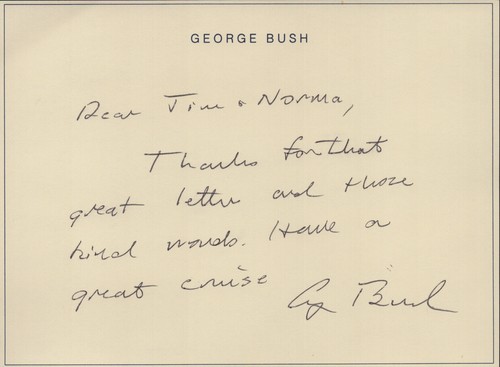 GEORGE BUSH
Dear Jim & Norma,
Thanks for that
great letter and those
kind words. Have a
great cruise
G Bush